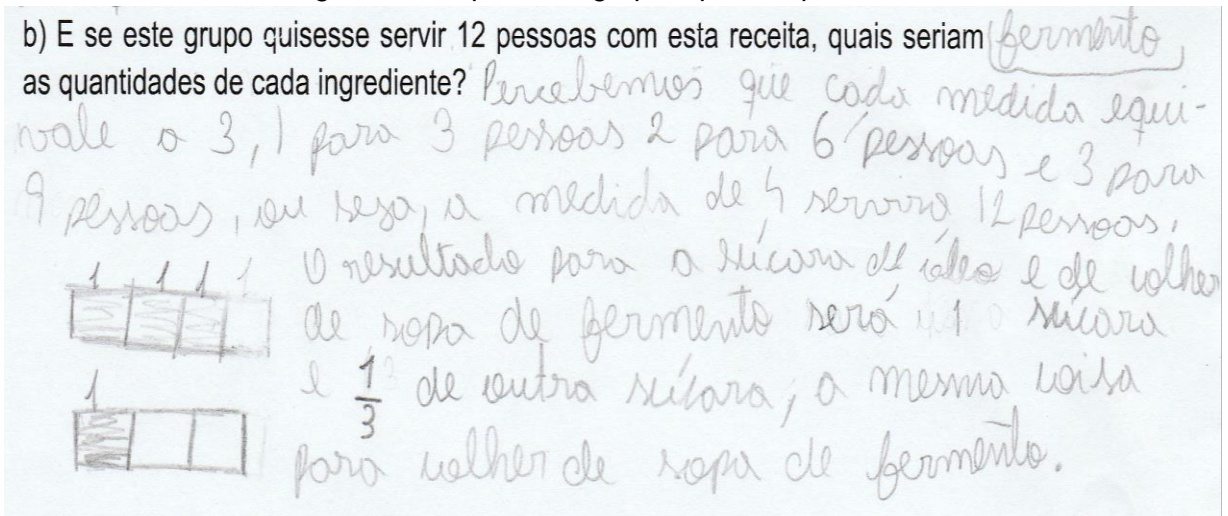 b) E se este grupo quisesse servir 12 pessoas com esta receita, quais seriam fermento,
as quantidades de cada ingrediente? Percebemos que cada medida equi-
vale a 3, 1 para 3 pessoas 2 para 6 pessoas e 3 para
9 pessoas, ou seja, a medida de 4 servirá 12 pessoas.
O resultado para a xícara de óleo e de colher
de sopa de fermento será 1 xícara
e 1/3 de outra xícara, a mesma coisa
para colher de sopa de fermento.
1 1 1 1
1